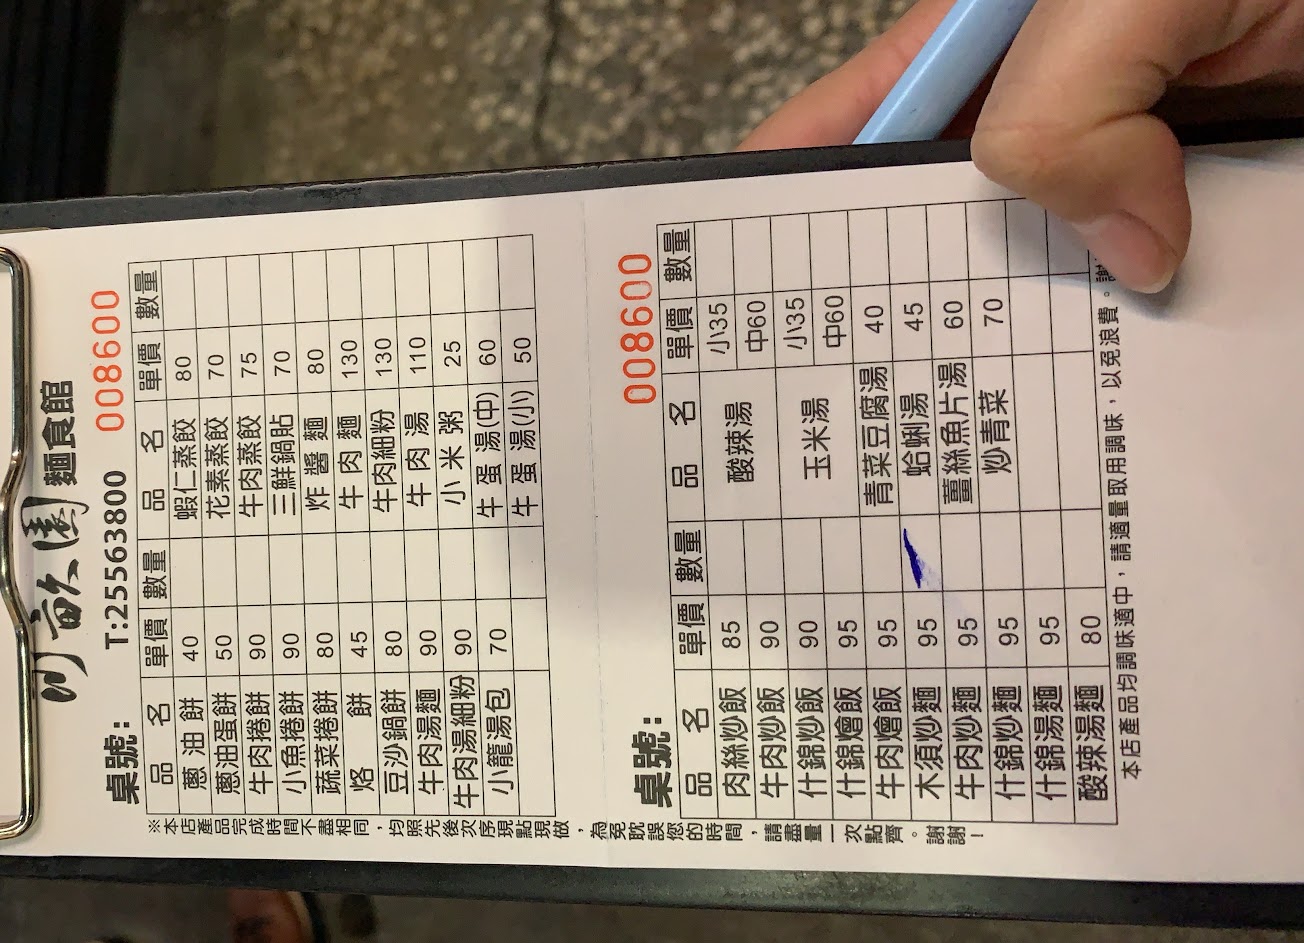 川畝園 麵食館
T:25563800
桌號: 008600
品 名 單價 數量 品 名 單價 數量
蔥 油 餅 40 蝦仁蒸餃 80
蔥油蛋餅 50 花素蒸餃 70
牛肉捲餅 90 牛肉蒸餃 75
小魚捲餅 90 三鮮鍋貼 70
蔬菜捲餅 80 炸 醬 麵 80
烙 餅 45 牛 肉 麵 130
豆沙鍋餅 80 牛肉細粉 130
牛肉湯麵 90 牛 肉 湯 110
牛肉湯細粉 90 小 米 粥 25
小籠湯包 70 牛 蛋 湯(中) 60
牛 蛋 湯(小) 50
桌號: 008600
品 名 單價 數量 品 名 單價 數量
肉絲炒飯 85 酸辣湯 小35
牛肉炒飯 90 中60
什錦炒飯 90 玉米湯 小35
什錦燴飯 95 中60
牛肉燴飯 95 青菜豆腐湯 40
木須炒麵 95 蛤蜊湯 45
牛肉炒麵 95 薑絲魚片湯 60
什錦炒麵 95 炒青菜 70
什錦湯麵 95
酸辣湯麵 80
本店產品均調味適中，請適量取用調味，以免浪費。謝
※本店產品完成時間不盡相同，均照先後次序現點現做，為免耽誤您的時間，請盡量一次點齊。謝謝！